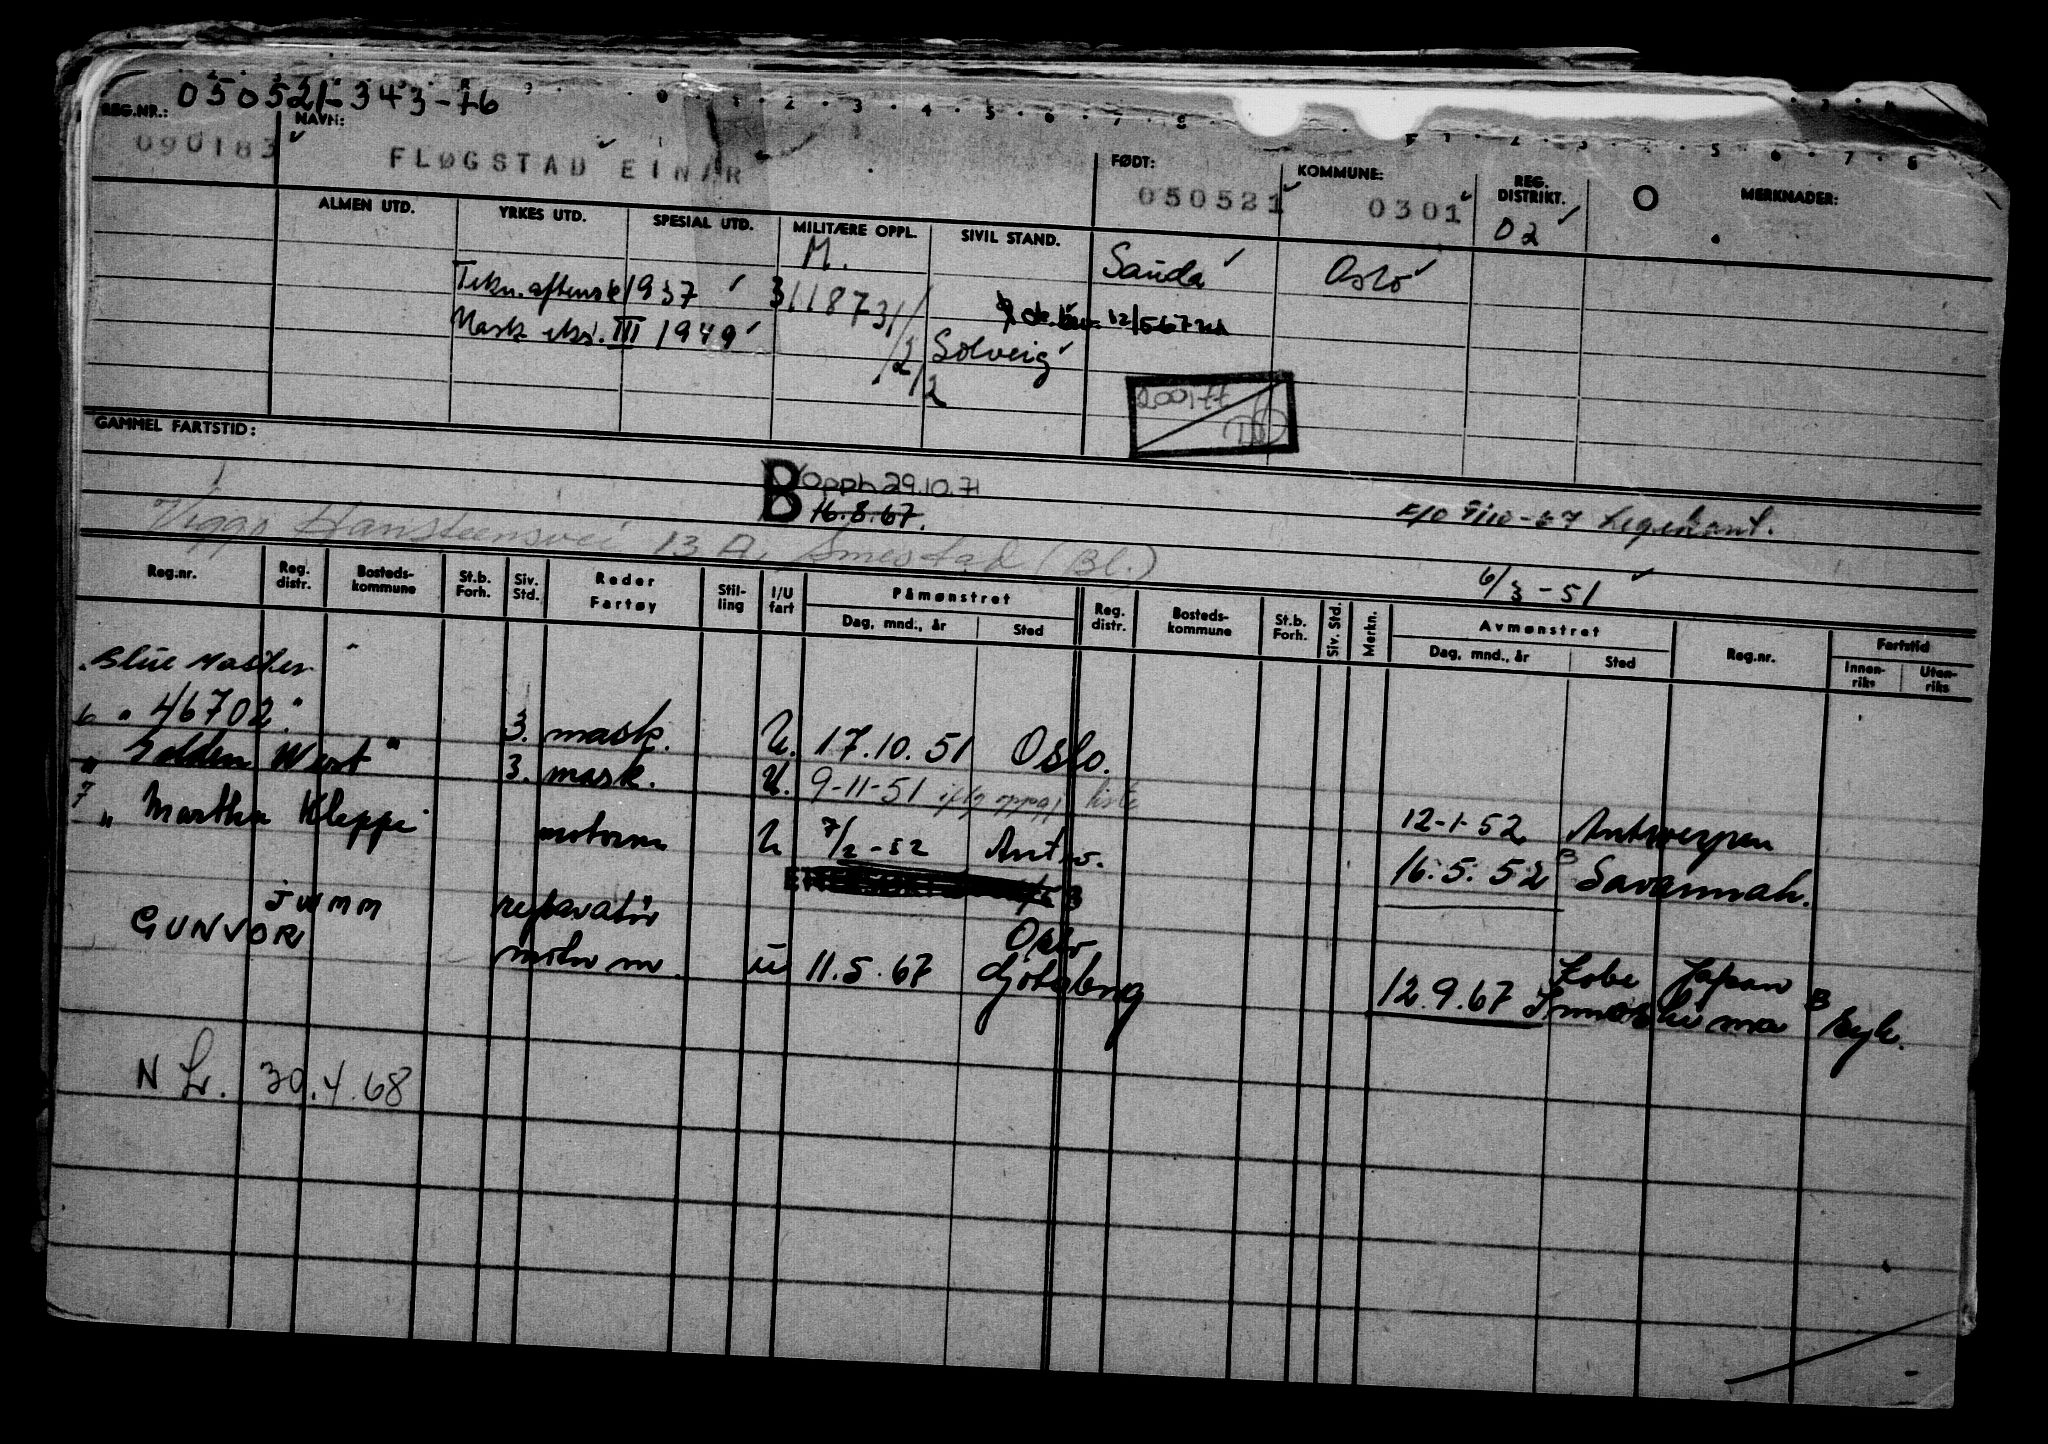 050521-343-76
REG.NR.: NAVN: FØDT: KOMMUNE: REG. DISTRIKT. MERKNADER:
090183 FLØGSTAD EINAR 050521 0301 02
ALMEN UTD. YRKES UTD. SPESIAL UTD. MILITÆRE OPPL. SIVIL STAND.
M. Sauda Oslo
Tekn. aftensk 1937 311873
Mask eks. III 1949 Solveig
200177
GAMMEL FARTSTID:
B Opph 29.10.71
16.8.67.
Viggo Hansteensvei 13 A, Smestad (Bl.)
6/3-51
Reg.nr. Reg. distr. Bosteds-kommune St.b. Forh. Siv. Std. Reder Fartøy Stil-ling I/U fart Påmønstret Dag, mnd., år Sted Reg. distr. Bosteds-kommune St.b. Forh. Siv. Std. Merkn. Avmønstret Dag, mnd., år Sted Reg.nr. Fartstid Innen-riks Uten-riks
"Blue Master"
" 46702" 3. mask. U. 17.10.51 Oslo.
"Golden West" 3. mask. U. 9-11-51 iflg oppgj liste 12-1-52 Antwerpen
" Martha Kleppe motorm U 7/2-52 Antw. 16.5.52 Savannah.
JWMM reparatør Oslo Kobe Japan
GUNVOR motor m. u 11.5.67 Gøteborg 12.9.67 Innoshima B Syk.
N Lr. 30.4.68